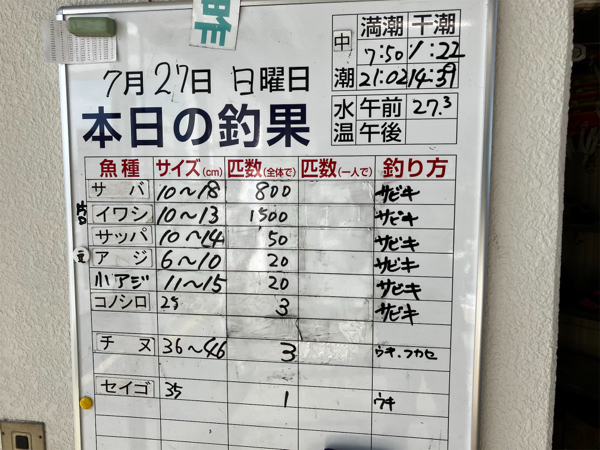 昨
満潮 干潮
中潮 7:50 1:22
21:02 14:39
7月27日 日曜日
水温 午前 27.3
午後
本日の釣果
魚種 サイズ(cm) 匹数(全体で) 匹数(一人で) 釣り方
サバ 10〜18 800 サビキ
片口 イワシ 10〜13 1500 サビキ
サッパ 10〜14 50 サビキ
アジ 6〜10 20 サビキ
小アジ 11〜15 20 サビキ
コノシロ 25 3 サビキ
チヌ 36〜46 3 ウキ、フカセ
セイゴ 35 1 ウキ